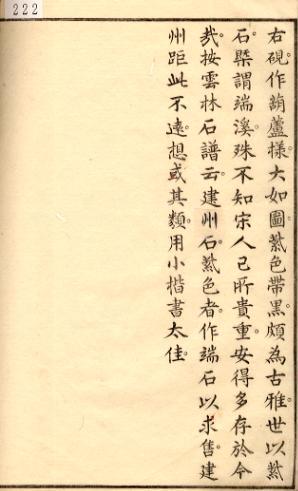 222
右硯作葫蘆樣大如圖紫色帶黑頗為古雅世以紫
石槩謂端溪殊不知宋人已所貴重安得多存於今
哉按雲林石譜云建州石紫色者作端石以求售建
州距此不遠想或其類用小楷書太佳